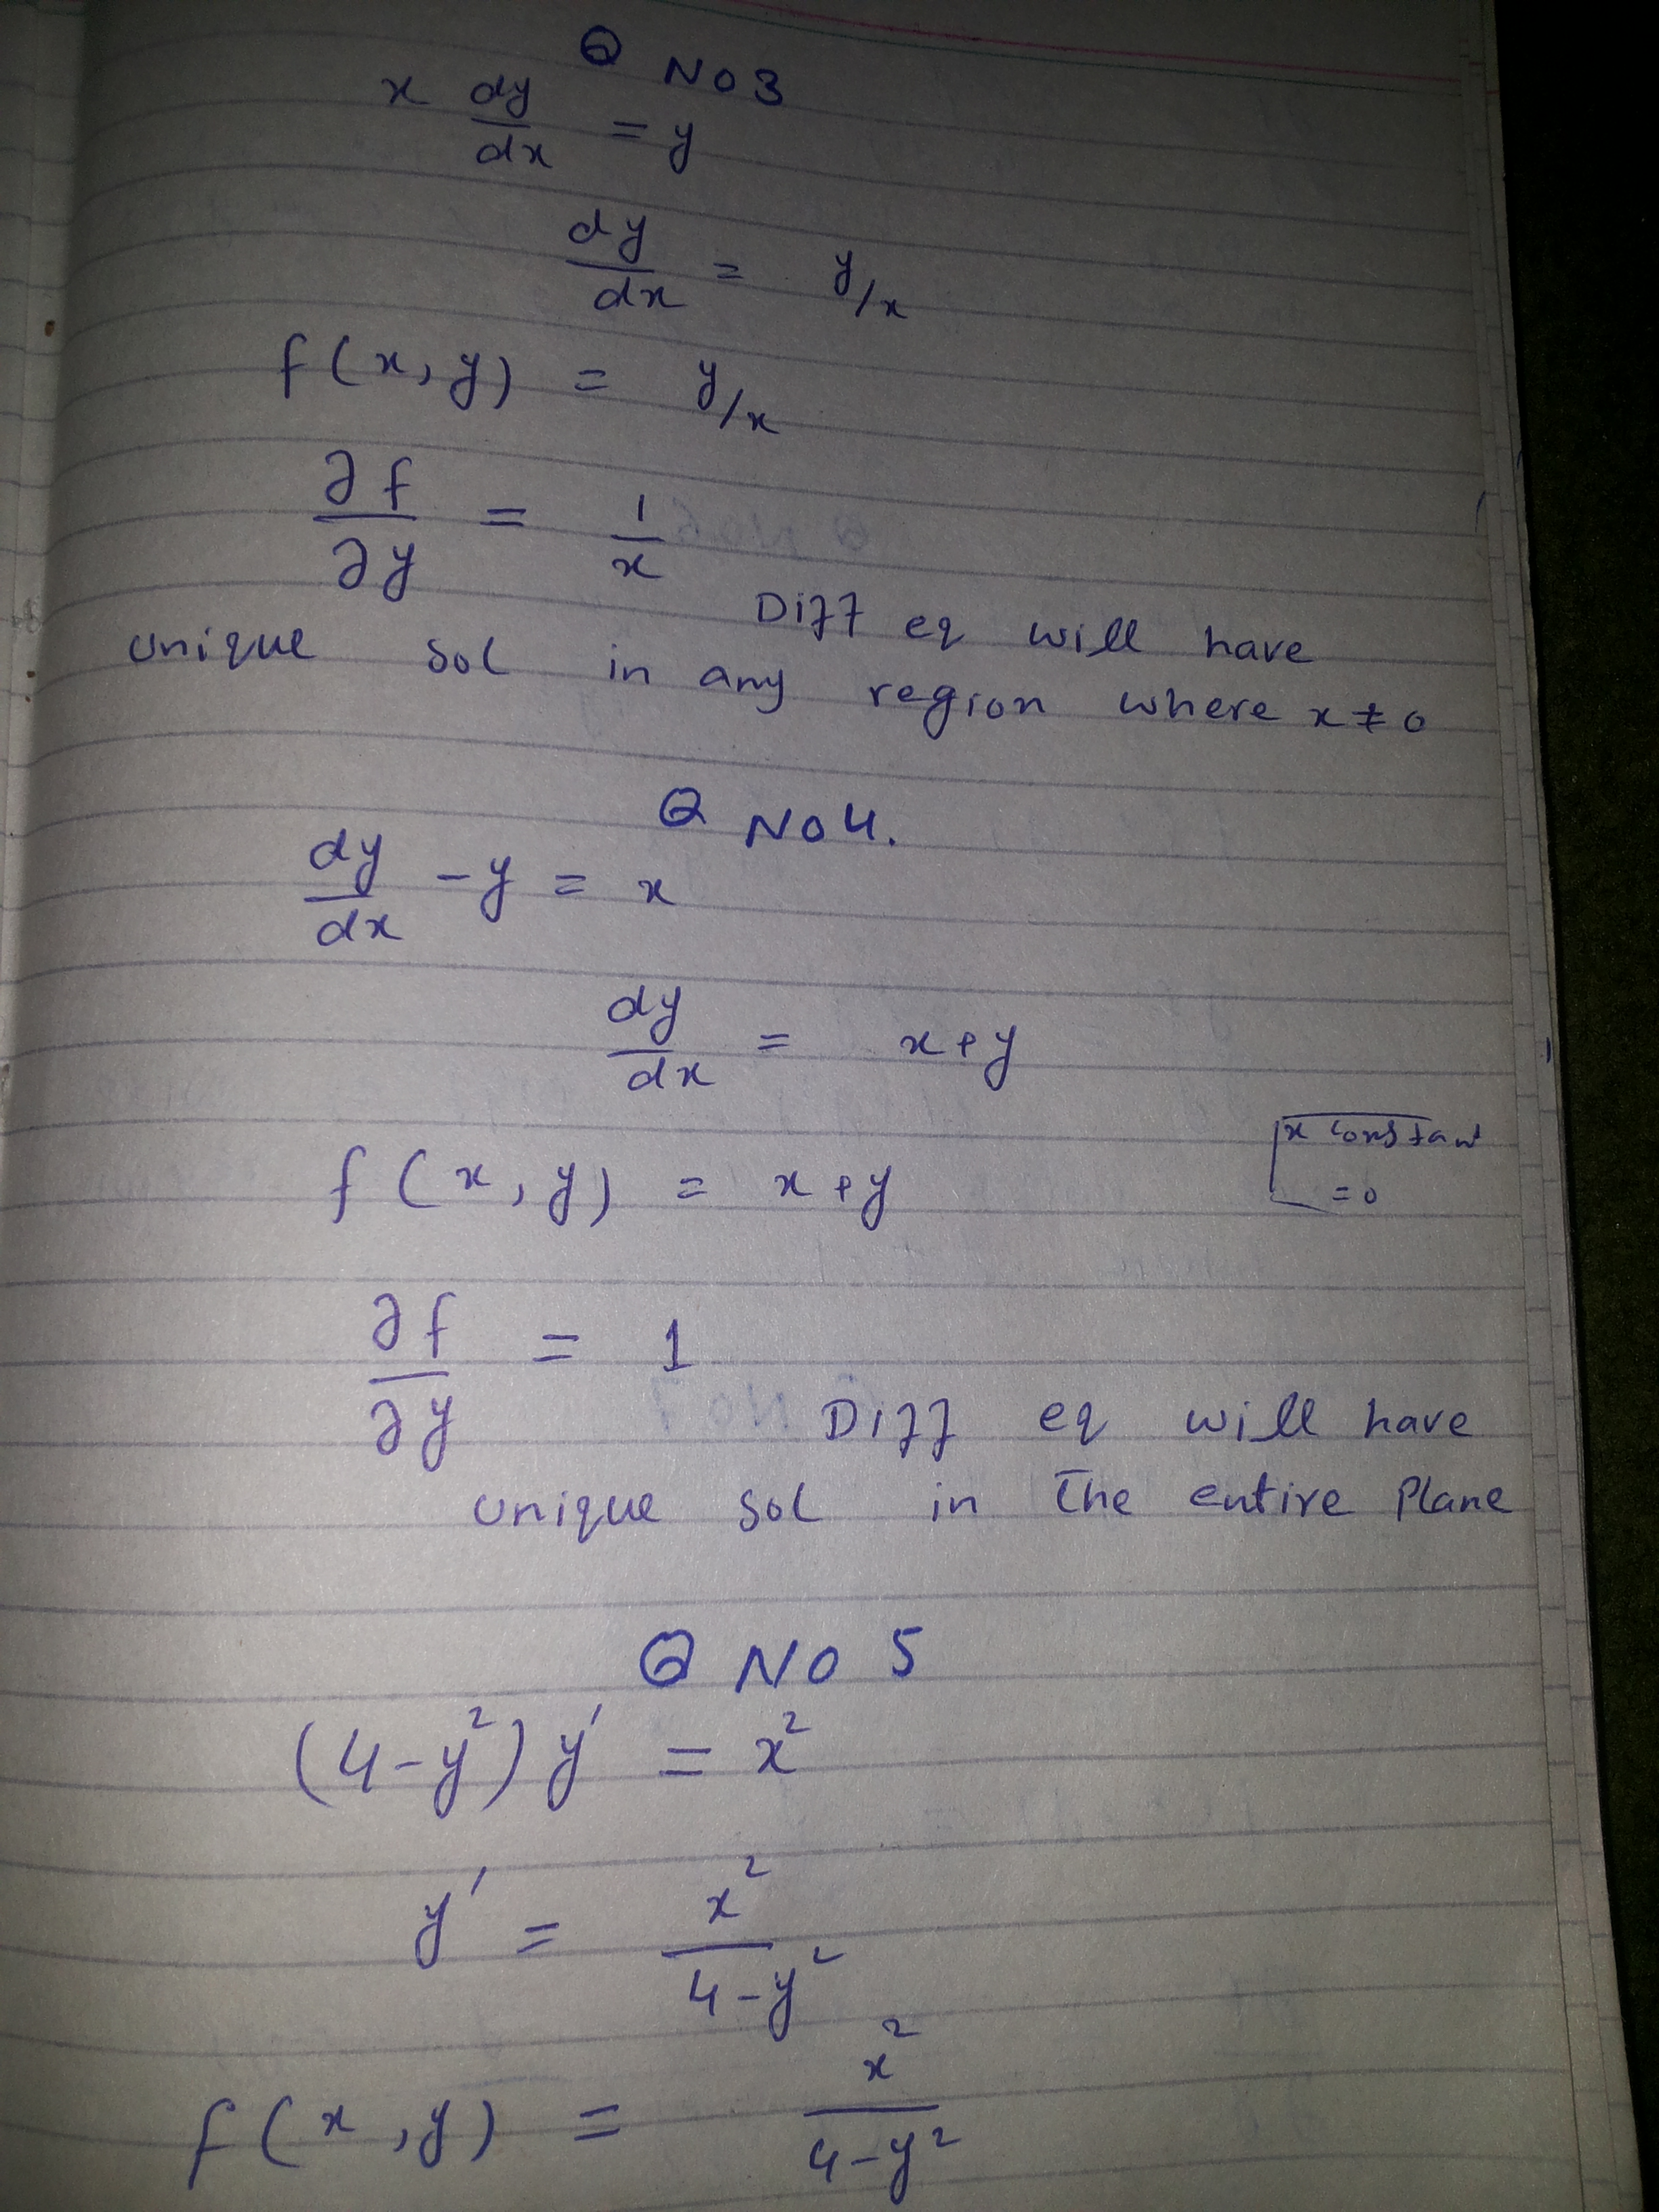 Q No 3
x dy/dx = y
dy/dx = y/x
f(x,y) = y/x
∂f/∂y = 1/x
Diff eq will have
unique sol in any region where x ≠ 0
Q No 4.
dy/dx - y = x
dy/dx = x+y
f(x,y) = x+y
x constant
= 0
∂f/∂y = 1
Diff eq will have
unique sol in the entire Plane
Q No 5
(4-y²)y' = x²
y' = x²/4-y²
f(x,y) = x²/4-y²